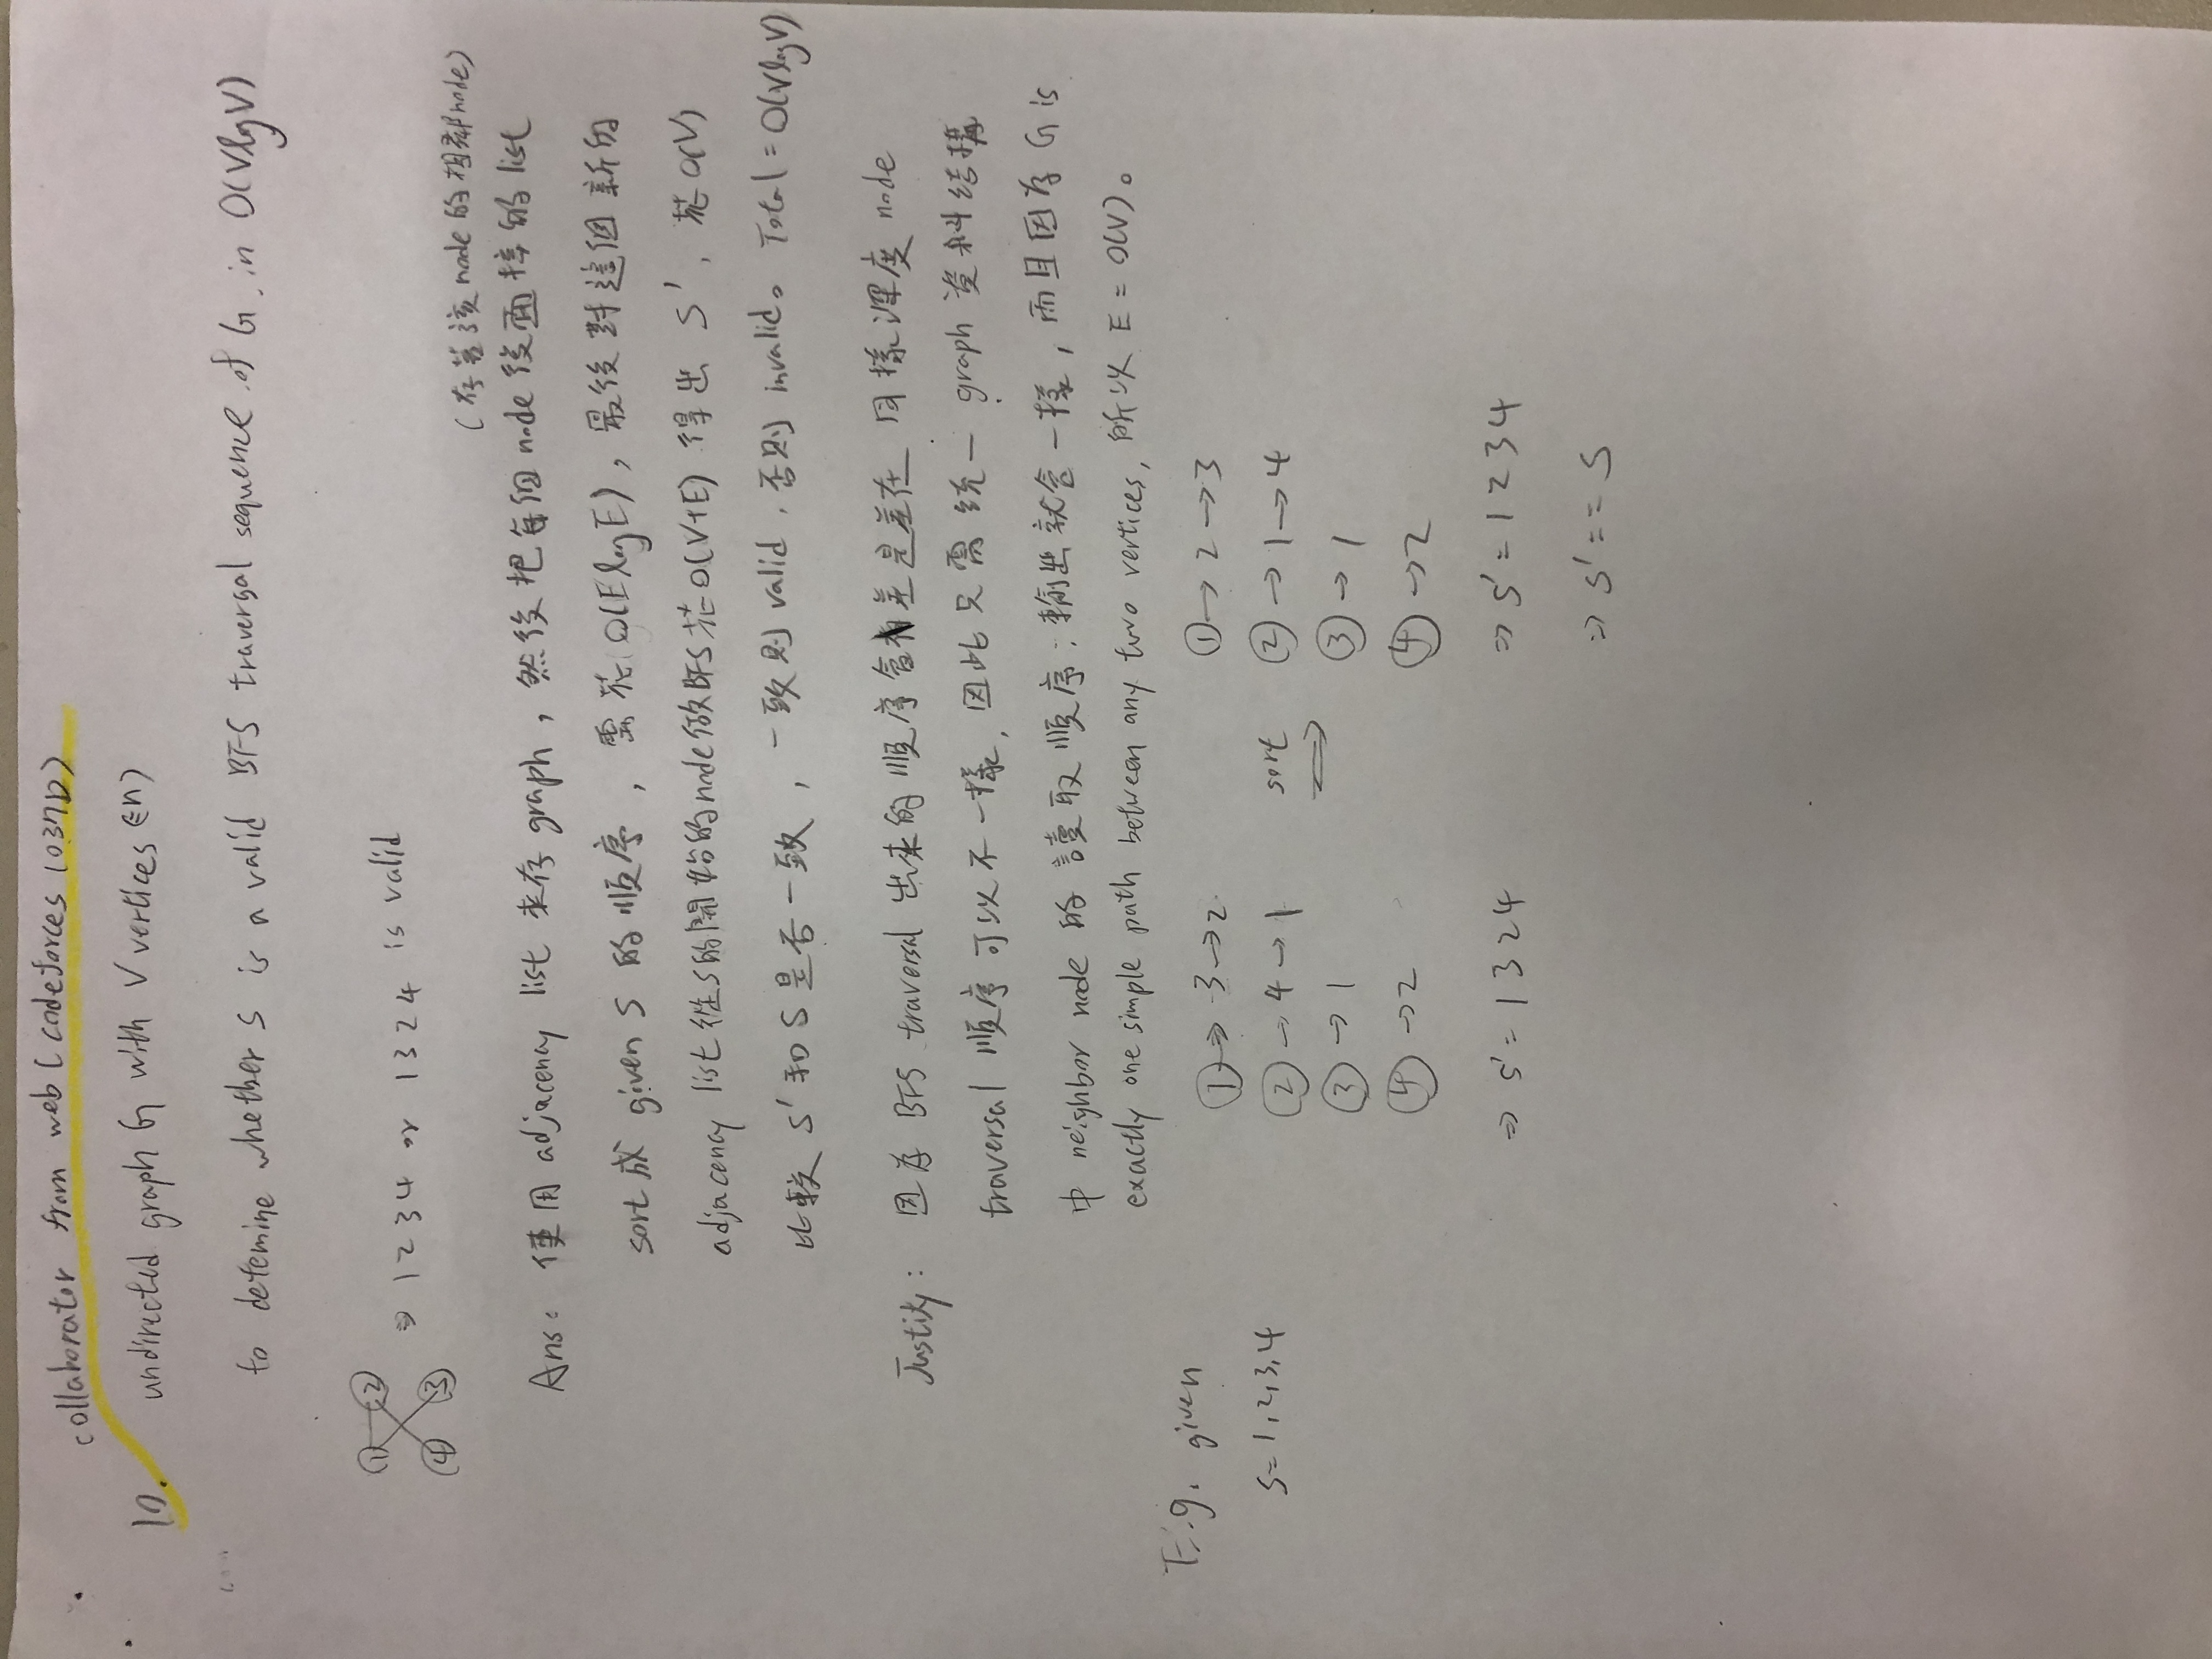 collaborator from web (codeforces 1037D)
10. undirected graph G with V vertices (∈n)
to detemine whether S is a valid BFS traversal sequence of G in O(VlgV)
① ②
④ ③
⇒ 1 2 3 4 or 1 3 2 4 is valid
(存著該node的相鄰node)
Ans: 使用 adjacency list 來存 graph，然後把每個 node 後面接的 list
sort 成 given S 的順序，需花 O(ElgE)，最後對這個新的
adjacency list 從S的開始的node做BFS花O(V+E) 得出 S'，花O(V)
比較 S' 和 S 是否一致，一致則 valid，否則 invalid。Total = O(VlgV)
Justify: 因為 BFS traversal 出來的順序會有差是差在 同樣深度 node
traversal 順序可以不一樣，因此只需統一 graph 資料結構
中 neighbor node 的 讀取順序，輸出就會一樣，而且因為 G is
exactly one simple path between any two vertices, 所以 E = O(V)。
E.g. given
S=1,2,3,4
①→ 3→2
②→4→1
③→1
④→2
⇒ S' = 1 3 2 4
sort
⇒
①→ 2→3
②→1→4
③→1
④→2
⇒ S' = 1 2 3 4
⇒ S' == S